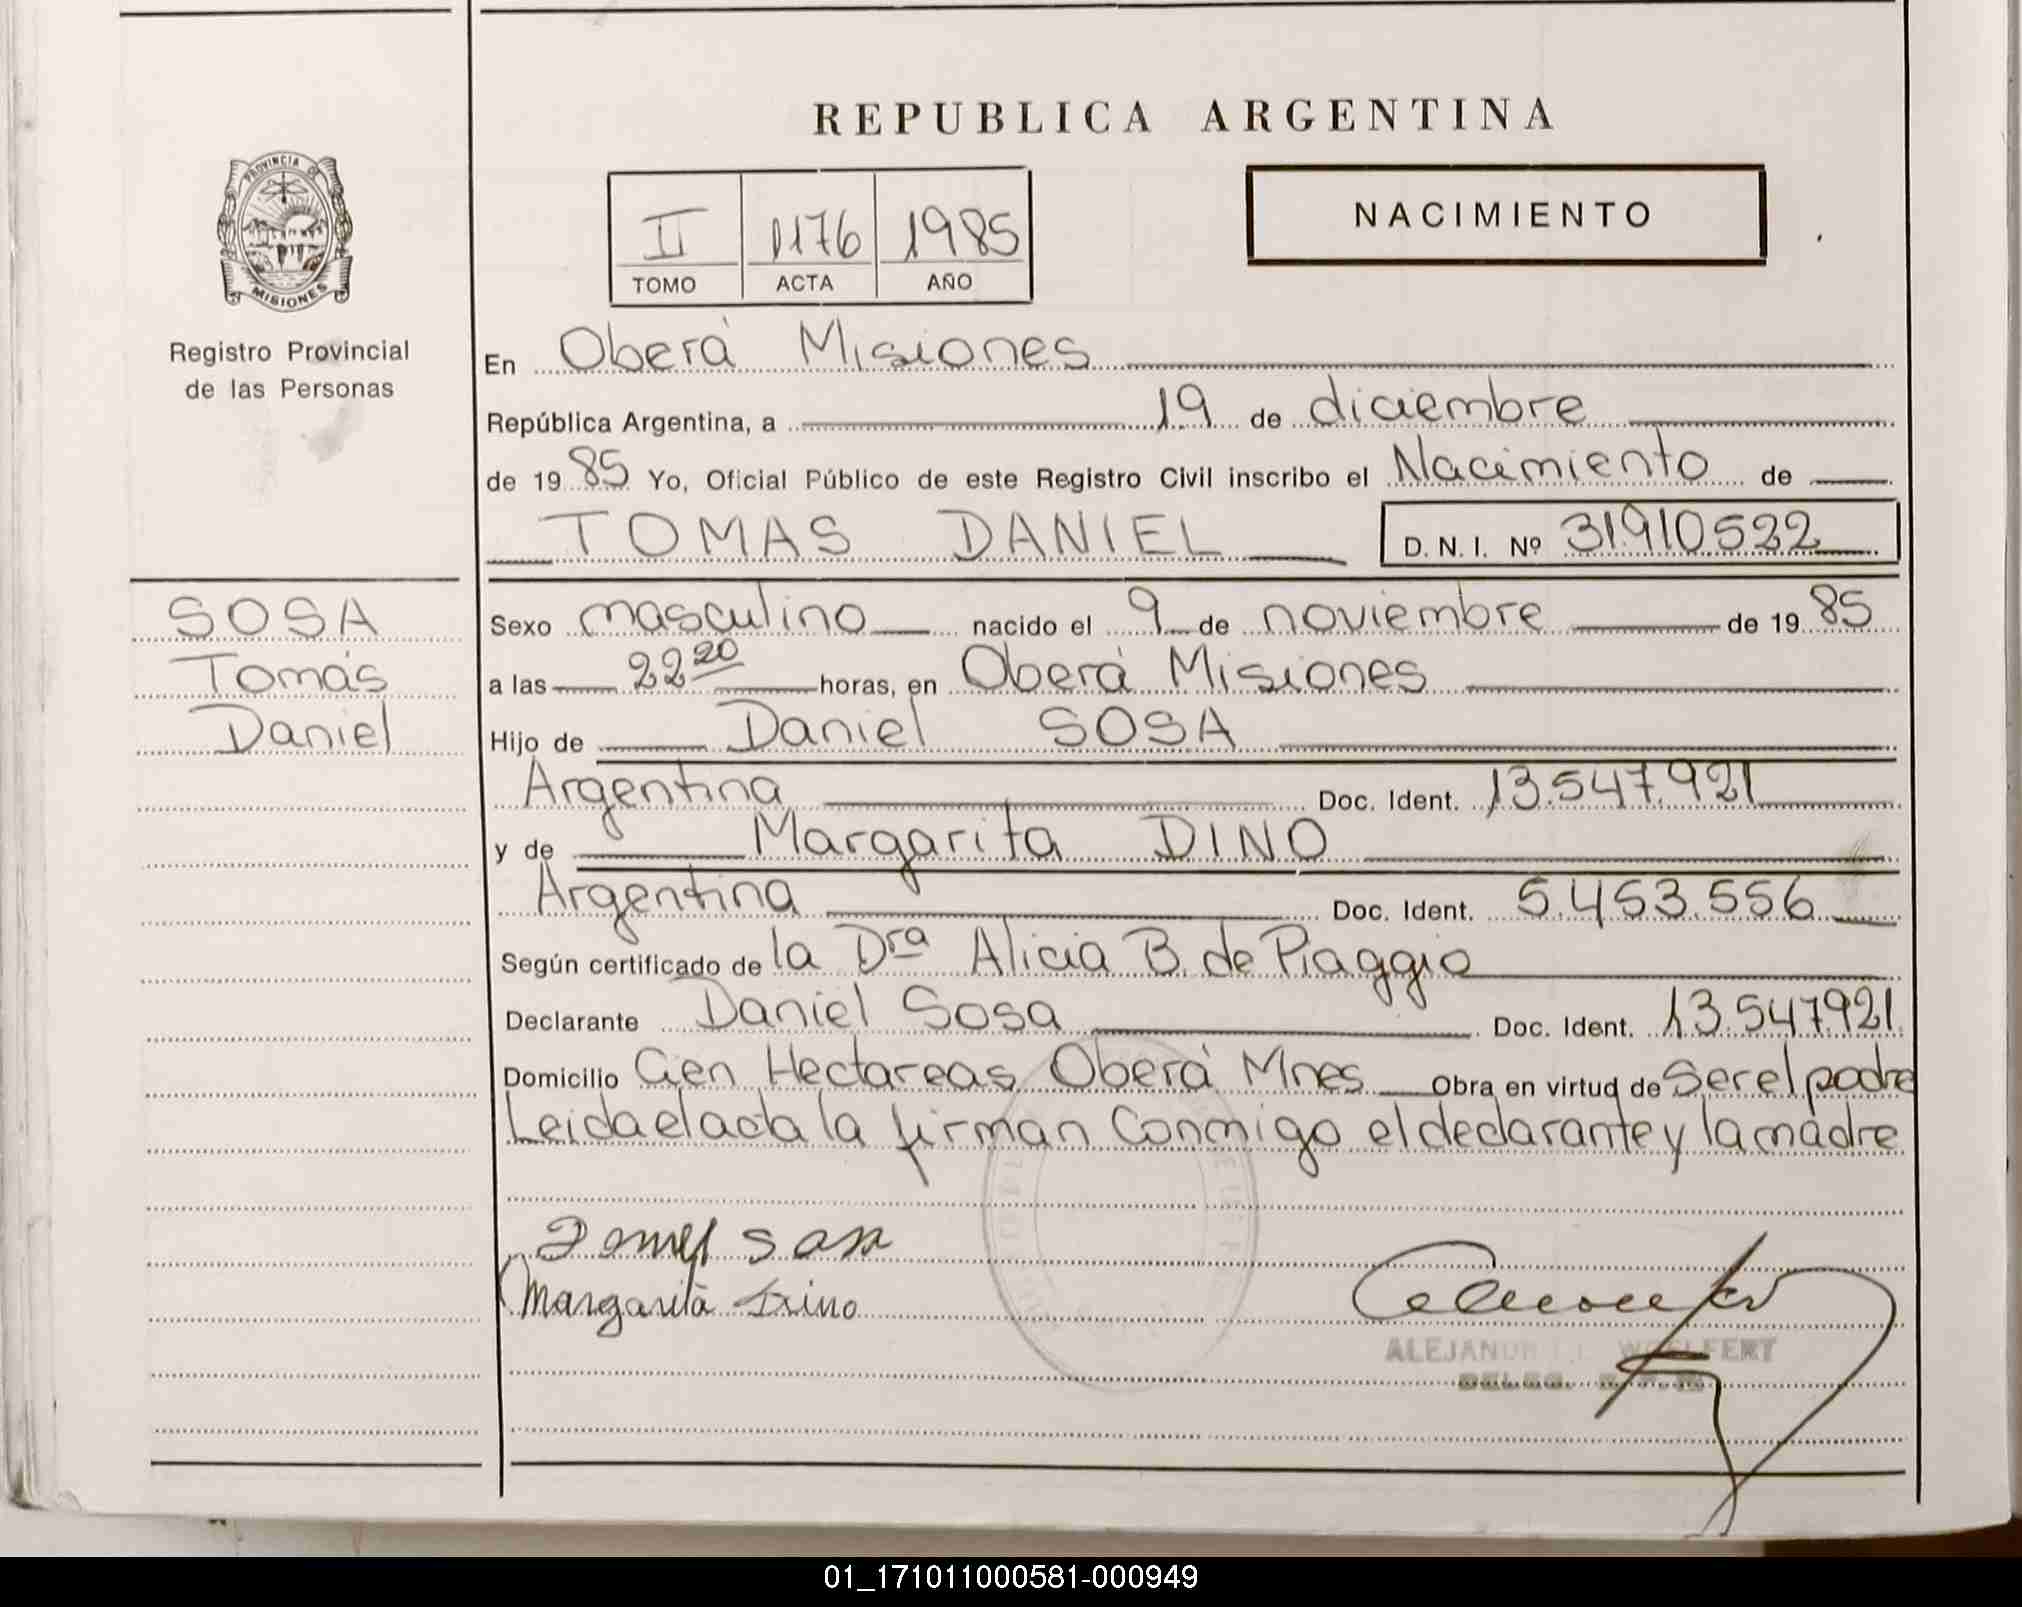 REPUBLICA ARGENTINA
PROVINCIA DE
MISIONES
Registro Provincial
de las Personas
II 1176 1985
TOMO ACTA AÑO
NACIMIENTO
En Oberá Misiones
República Argentina, a 19 de diciembre
de 19 85 Yo, Oficial Público de este Registro Civil inscribo el Nacimiento de
TOMAS DANIEL D. N. I. Nº 31910522
SOSA
Tomás
Daniel
Sexo masculino nacido el 9 de noviembre de 19 85
a las 22 20 horas, en Oberá Misiones
Hijo de Daniel SOSA
Argentina Doc. Ident. 13.547.921
y de Margarita DINO
Argentina Doc. Ident. 5.453.556
Según certificado de la Dra Alicia B. de Piaggio
Declarante Daniel Sosa Doc. Ident. 13.547.921
Domicilio Cien Hectareas Oberá Mnes Obra en virtud de Ser el padre
Leida el acta la firman Conmigo el declarante y la madre
Daniel Sosa
Margarita Dino
WOELFERT
DELEG.
01_171011000581-000949